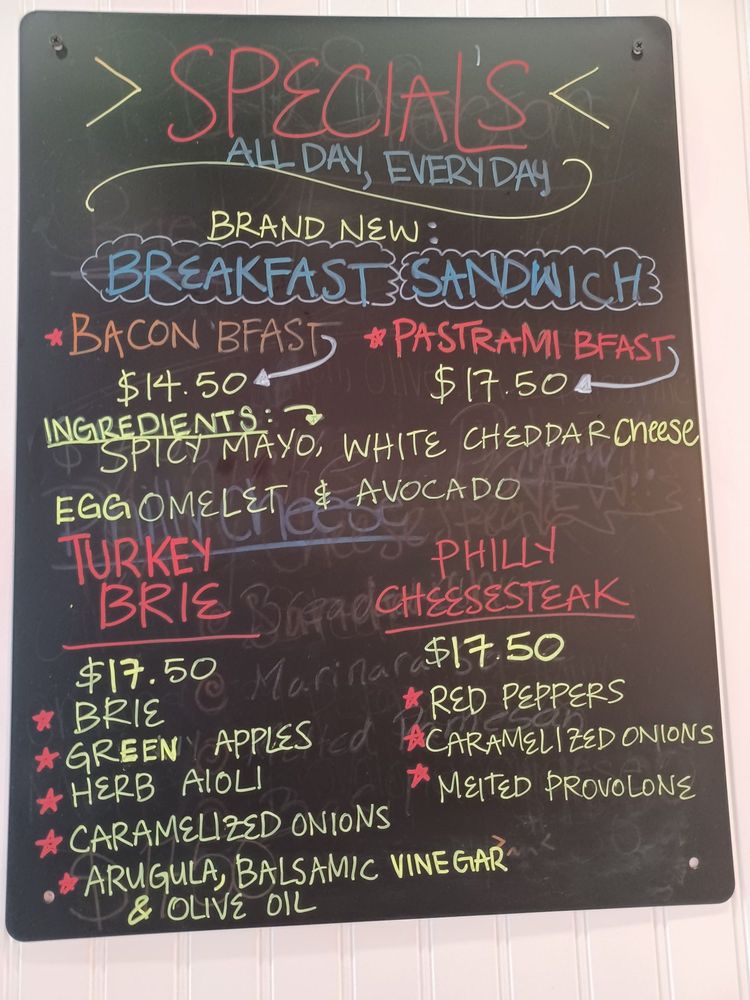 > SPECIALS <
ALL DAY, EVERYDAY
BRAND NEW:
BREAKFAST SANDWICH
* BACON BFAST
* PASTRAMI BFAST
$14.50
$17.50
INGREDIENTS:
SPICY MAYO, WHITE CHEDDAR Cheese
EGG OMELET & AVOCADO
TURKEY
BRIE
$17.50
★ BRIE
★ GREEN APPLES
★ HERB AIOLI
★ CARAMELIZED ONIONS
★ ARUGULA, BALSAMIC VINEGAR
& OLIVE OIL
PHILLY
CHEESESTEAK
$17.50
★ RED PEPPERS
★ CARAMELIZED ONIONS
★ MELTED PROVOLONE